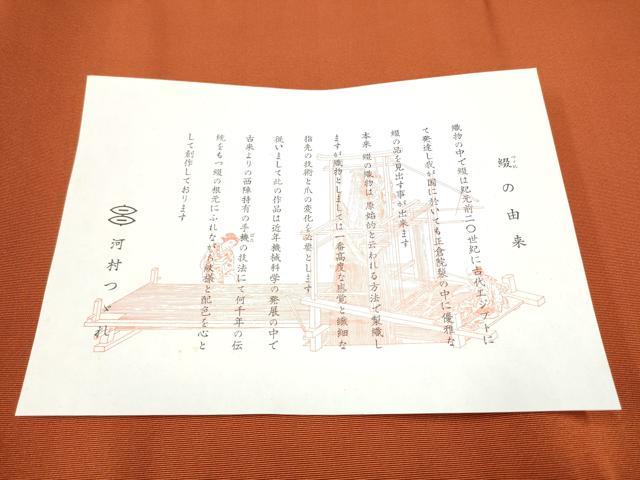 綴の由来
つづれ
織物の中で綴は紀元前二〇世紀に古代エジプトに
て発達し我が国に於いても正倉院裂の中に優雅な
綴の品を見出す事が出来ます
本来 綴の織物は 原始的と云われる方法で製織し
ますが織物としましては一番高度な感覚と繊細な
指先の技術と爪の変化を必要とします
従いまして此の作品は近年機械科学の発展の中で
古来よりの西陣特有の手機の技法にて何千年の伝
統をもつ綴の根元にふれながら紋様と配色を心と
して創作しております
河村つゞれ